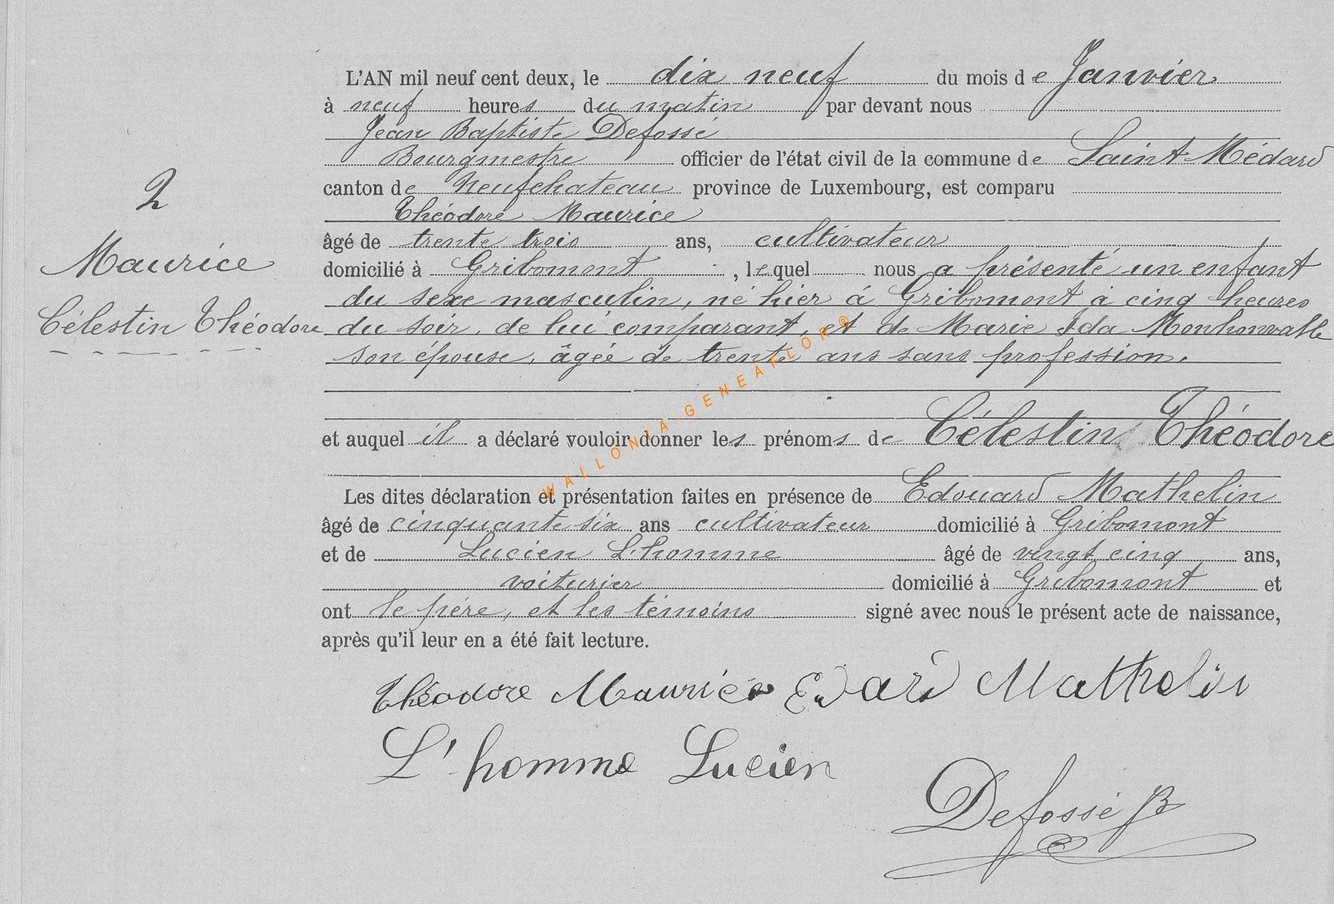 L'AN mil neuf cent deux, le dix neuf du mois de Janvier
à neuf heures du matin par devant nous
Jean Baptiste Defossé
Bourgmestre officier de l'état civil de la commune de Saint-Médard
canton de Neufchateau province de Luxembourg, est comparu
Théodore Maurice
âgé de trente trois ans, cultivateur
domicilié à Gribomont, lequel nous a présenté un enfant
du sexe masculin, né hier à Gribomont à cinq heures
du soir, de lui comparant, et de Marie Ida Monhonvalle
son épouse, âgée de trente ans sans profession.
et auquel il a déclaré vouloir donner les prénoms de Célestin Théodore
Les dites déclaration et présentation faites en présence de Edouard Mathelin
âgé de cinquante six ans cultivateur domicilié à Gribomont
et de Lucien L'homme âgé de vingt cinq ans,
voiturier domicilié à Gribomont et
ont le père, et les témoins signé avec nous le présent acte de naissance,
après qu'il leur en a été fait lecture.
2
Maurice
Célestin Théodore
Théodore Maurice Edard Mathelin
L'homme Lucien
Defossé JB
WALLONIA-GENEAFLOR®